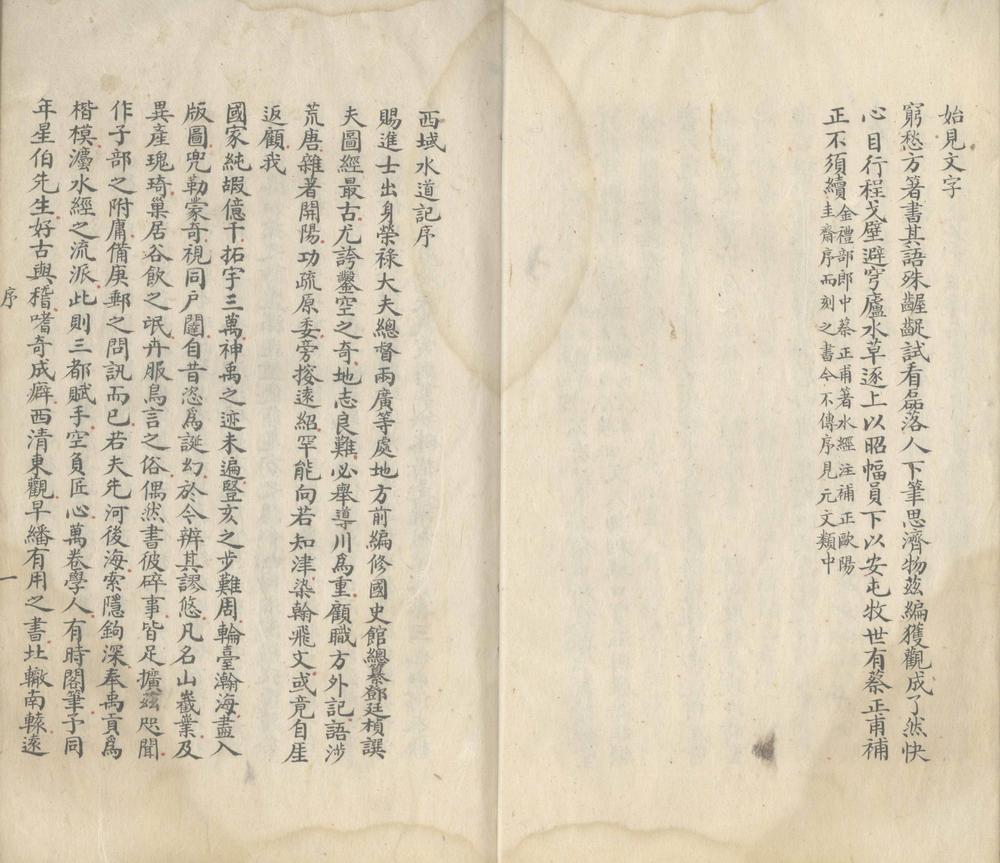 始見文字
窮愁方箸書其語殊齷齪試看磊落人下筆思濟物茲編獲觀成了然快
心目行程戈壁避穹廬水草逐上以昭幅員下以安屯牧世有蔡正甫補
正不須續金禮部郎中蔡正甫著水經注補正歐陽
圭齋序而刻之書今不傳序見元文類中
西域水道記序
賜進士出身榮祿大夫總督兩廣等處地方前編修國史館總纂鄧廷楨譔
夫圖經最古尤誇鑿空之奇地志良難必舉導川爲重顧職方外記語涉
荒唐雜著開陽功疏原委旁搜遠紹罕能向若知津染翰飛文或竟自厓
返顧我
國家純嘏億千拓宇三萬神禹之迹未遍豎亥之步難周輪臺瀚海盡入
版圖兜勒蒙奇視同戶闥自昔恣爲誕幻於今辨其謬悠凡名山嶻業及
異產瑰琦巢居谷飲之氓卉服鳥言之俗偶然書彼碎事皆足擴茲咫聞
作子部之附庸備庚郵之問訊而已若夫先河後海索隱鉤深奉禹貢爲
楷模灋水經之流派此則三都賦手空負匠心萬卷學人有時閣筆予同
年星伯先生好古與稽嗜奇成癖西清東觀早繙有用之書北轍南轅遠
序
一